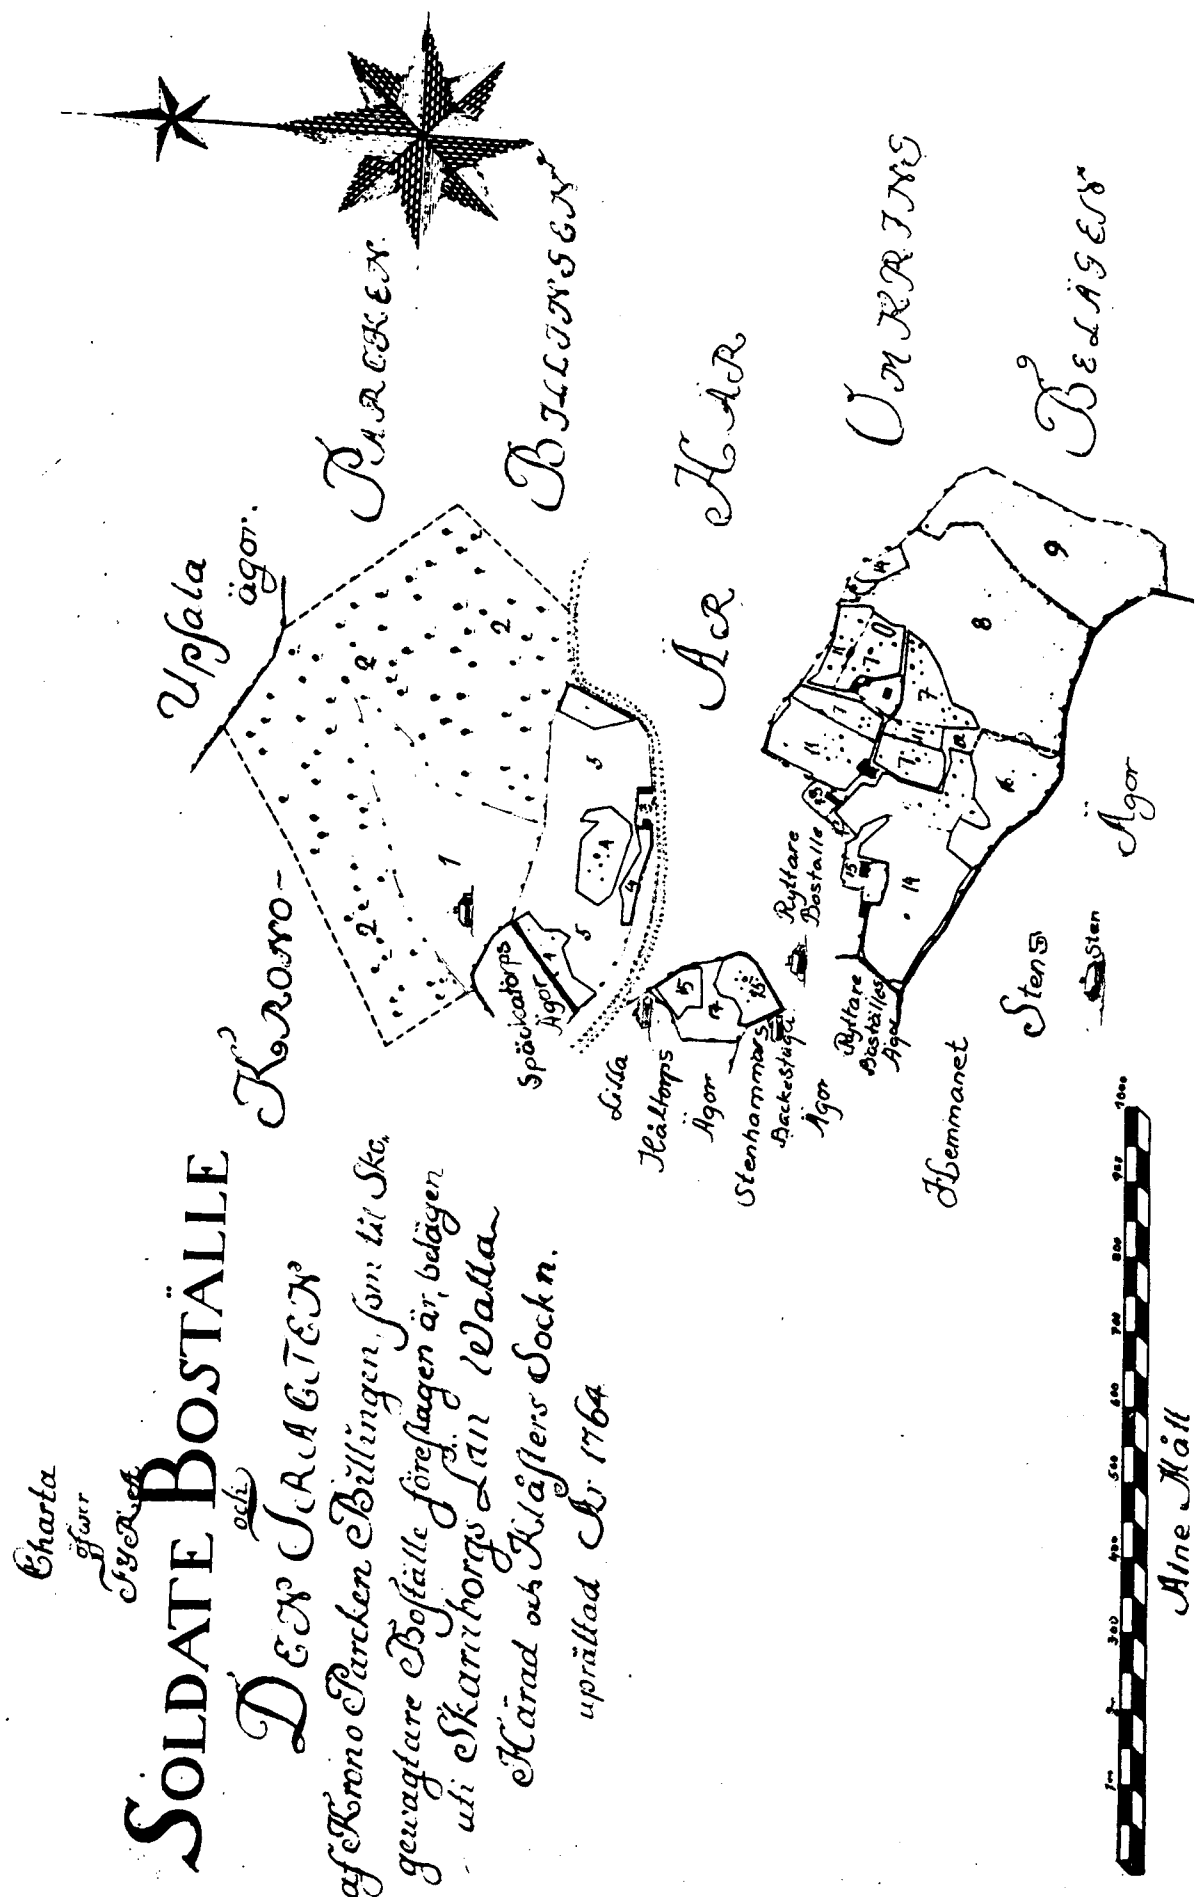 Charta
öfwer
FYRA
SOLDATE BOSTÄLLE
och
DEN TRACTEN
af Krono Parcken Billingen som til Sko,
gewagtare Boställe föreslagen är, belägen
uti Skaraborgs Län Walla
Härad och Klåsters Sockn.
uprättad År 1764
KRONO-
PARCKEN
BILLINGEN
ÄR HÄR
OMKRING
BELÄGEN
Upsala
ägor.
2
2
2
1
5
5
4
4
4
Späckatorps
Ägor
Lilla
Håltorps
Ägor
15
14
16
Stenhammars
Backestuga
Ägor
Ryttare
Bostalle
Ryttare
Boställes
Ägor
11
11
11
7
7
7
7
13
14
15
14
16
8
9
Hemmanet
Stens
Ägor
Sten
100 300 400 500 600 700 800 900 1000
Alne Mått